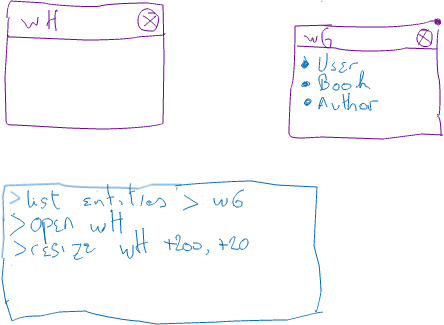 wH
wG
User
Book
Author
>list entities > wG
>open wH
>resize wH +200, +20